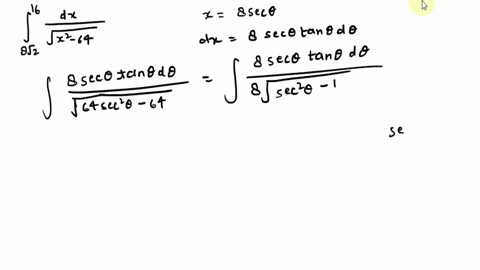 ∫_{8√2}^{16} dx / √(x²-64)
x = 8secθ
dx = 8 secθ tanθ dθ
∫ 8 secθ tanθ dθ / √(64 sec²θ - 64) = ∫ 8 secθ tanθ dθ / 8√(sec²θ - 1)
se